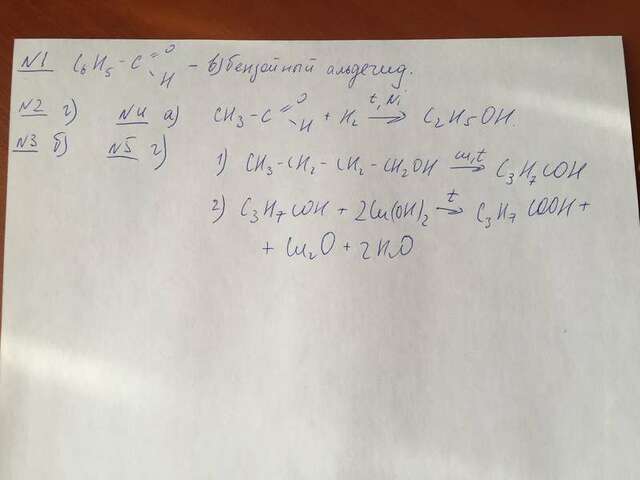 N1 C6H5-C=O H - в) бензойный альдегид.
N2 г) N4 а) CH3-C=O H + H2 t, Ni → C2H5OH.
N3 б) N5 г) 1) CH3-CH2-CH2-CH2OH Cu,t → C3H7COH
2) C3H7COH + 2Cu(OH)2 t → C3H7COOH +
+ Cu2O + 2H2O